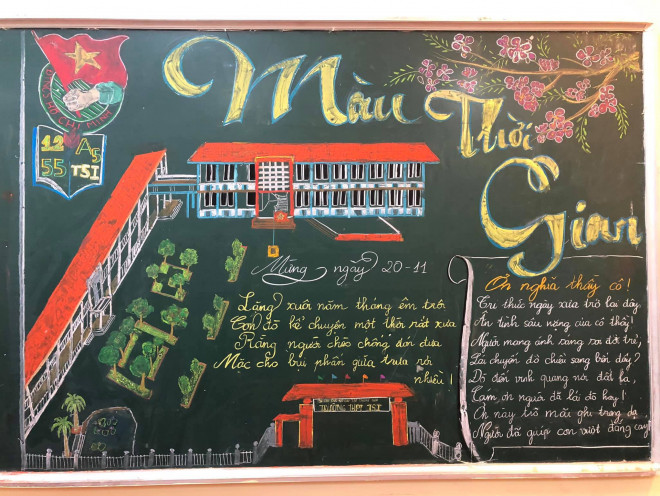 ĐOÀN TNCS HỒ CHÍ MINH
12 A5
55 TSI
Màu
Thời
Gian
Mừng ngày 20-11
Lặng xuôi năm tháng êm trôi
Con đò kể chuyện một thời rất xưa
Rằng người chèo chống đón đưa
Mặc cho bụi phấn giữa trưa rơi
nhiều!
Ơn nghĩa thầy cô!
Tri thức ngày xưa trở lại đây,
Ân tình sâu nặng của cô thầy!
Người mang ánh sáng soi đời trẻ,
Lái chuyến đò chiều sang bến đầy?
Đò đến vinh quang nơi đất lạ,
Cảm ơn người đã lái đò hay!
Ơn này trò mãi ghi trong dạ
Người đã giúp con vượt đắng cay!
TRƯỜNG THPT TSI